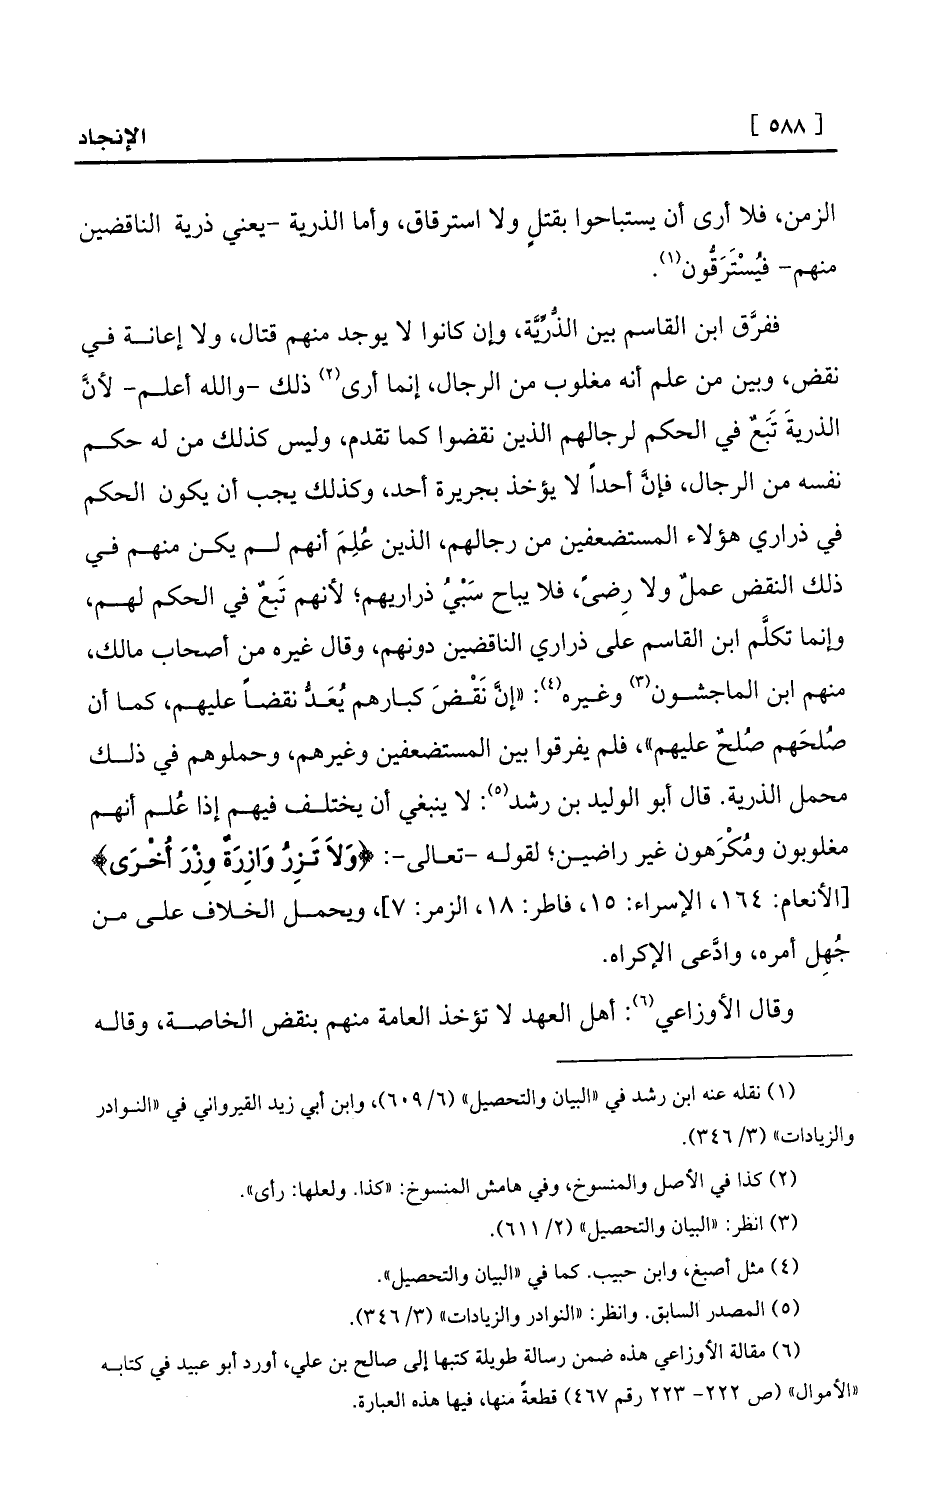 [ ٥٨٨ ]
الإنجاد
الزمن، فلا أرى أن يستباحوا بقتلٍ ولا استرقاق، وأما الذرية -يعني ذرية الناقضين
منهم- فيُسْتَرَقُّون(١).
ففرَّق ابن القاسم بين الذُّرِّيَّة، وإن كانوا لا يوجد منهم قتال، ولا إعانة في
نقض، وبين من علم أنه مغلوب من الرجال، إنما أرى(٢) ذلك -والله أعلم- لأنَّ
الذريةَ تَبَعٌ في الحكم لرجالهم الذين نقضوا كما تقدم، وليس كذلك من له حكم
نفسه من الرجال، فإنَّ أحداً لا يؤخذ بجريرة أحد، وكذلك يجب أن يكون الحكم
في ذراري هؤلاء المستضعفين من رجالهم، الذين عُلِمَ أنهم لم يكن منهم في
ذلك النقض عملٌ ولا رِضىً، فلا يباح سَبْيُ ذراريهم؛ لأنهم تَبعٌ في الحكم لهم،
وإنما تكلَّم ابن القاسم على ذراري الناقضين دونهم، وقال غيره من أصحاب مالك،
منهم ابن الماجشون(٣) وغيره(٤): «إنَّ نَقْضَ كبارهم يُعَدُّ نقضاً عليهم، كما أن
صُلحَهم صُلحٌ عليهم»، فلم يفرقوا بين المستضعفين وغيرهم، وحملوهم في ذلك
محمل الذرية. قال أبو الوليد بن رشد(٥): لا ينبغي أن يختلف فيهم إذا عُلم أنهم
مغلوبون ومُكْرَهون غير راضين؛ لقوله -تعالى-: ﴿وَلاَ تَزِرُ وَازِرَةٌ وِزْرَ أُخْرَى﴾
[الأنعام: ١٦٤، الإسراء: ١٥، فاطر: ١٨، الزمر: ٧]، ويحمل الخلاف على من
جُهِل أمره، وادَّعى الإكراه.
وقال الأوزاعي(٦): أهل العهد لا تؤخذ العامة منهم بنقض الخاصة، وقاله
(١) نقله عنه ابن رشد في «البيان والتحصيل» (٦/ ٦٠٩)، وابن أبي زيد القيرواني في «النوادر
والزيادات» (٣/ ٣٤٦).
(٢) كذا في الأصل والمنسوخ، وفي هامش المنسوخ: «كذا. ولعلها: رأى».
(٣) انظر: «البيان والتحصيل» (٢/ ٦١١).
(٤) مثل أصبغ، وابن حبيب. كما في «البيان والتحصيل».
(٥) المصدر السابق. وانظر: «النوادر والزيادات» (٣/ ٣٤٦).
(٦) مقالة الأوزاعي هذه ضمن رسالة طويلة كتبها إلى صالح بن علي، أورد أبو عبيد في كتابه
«الأموال» (ص ٢٢٢- ٢٢٣ رقم ٤٦٧) قطعةً منها، فيها هذه العبارة.